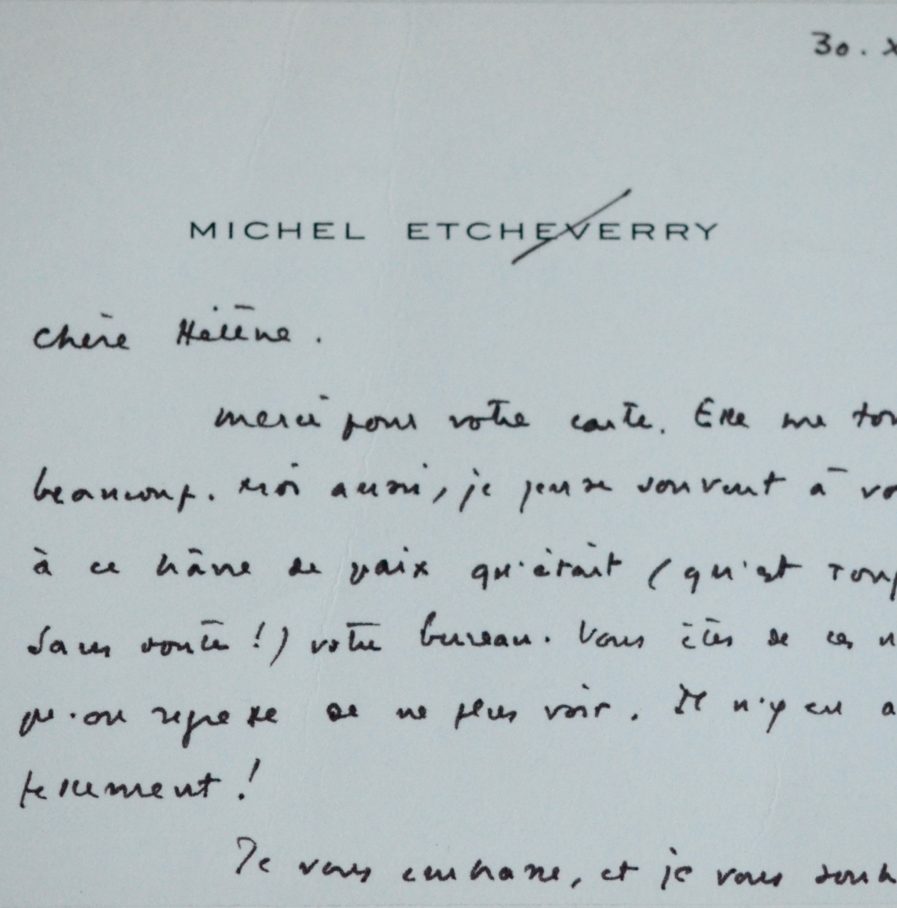 30. X
MICHEL ETCHEVERRY
Chère Hélène.
Merci pour votre carte. Elle me tou
beaucoup. Moi aussi, je pense souvent à vo
à ce hâvre de paix qu'était (qu'est touj
sans doute!) votre bureau. Vous êtes de ces
qu'on regrette de ne plus voir. Il n'y en a
tellement!
Je vous embrasse, et je vous souh